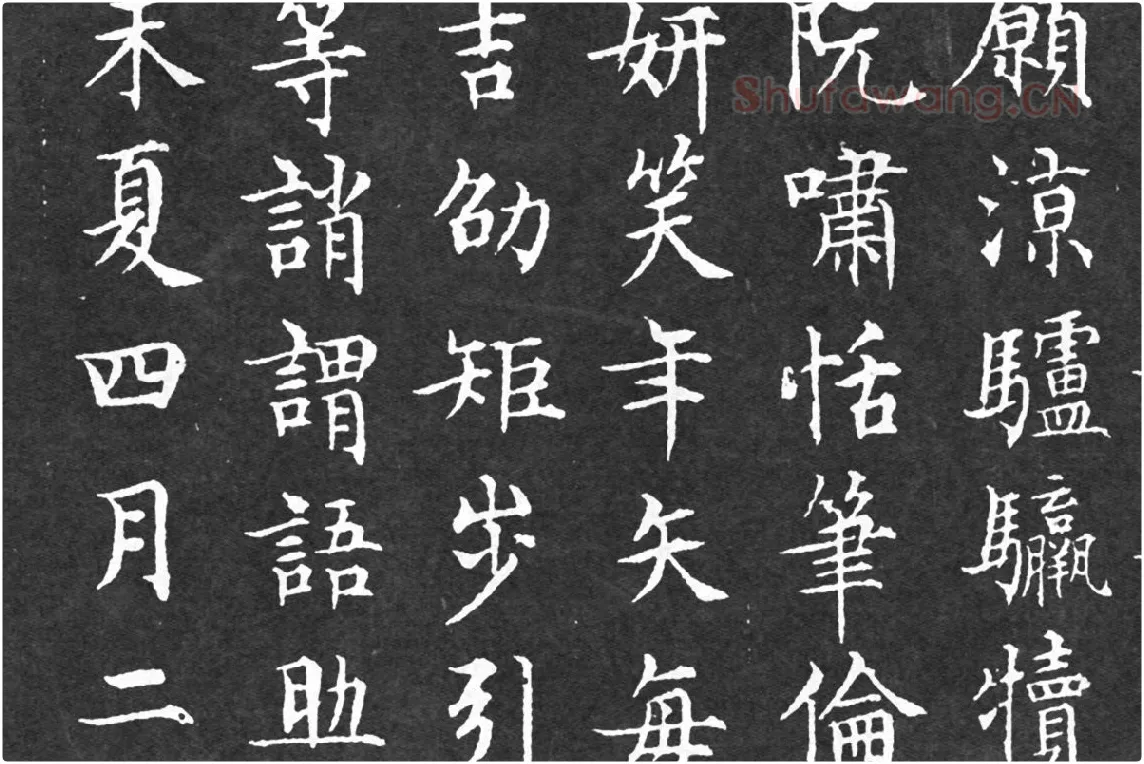 願凉驢驘犢
阮嘯恬筆倫
妍笑年矢每
吉劭矩步引
等誚謂語助
未夏四月二
Shufawang.CN